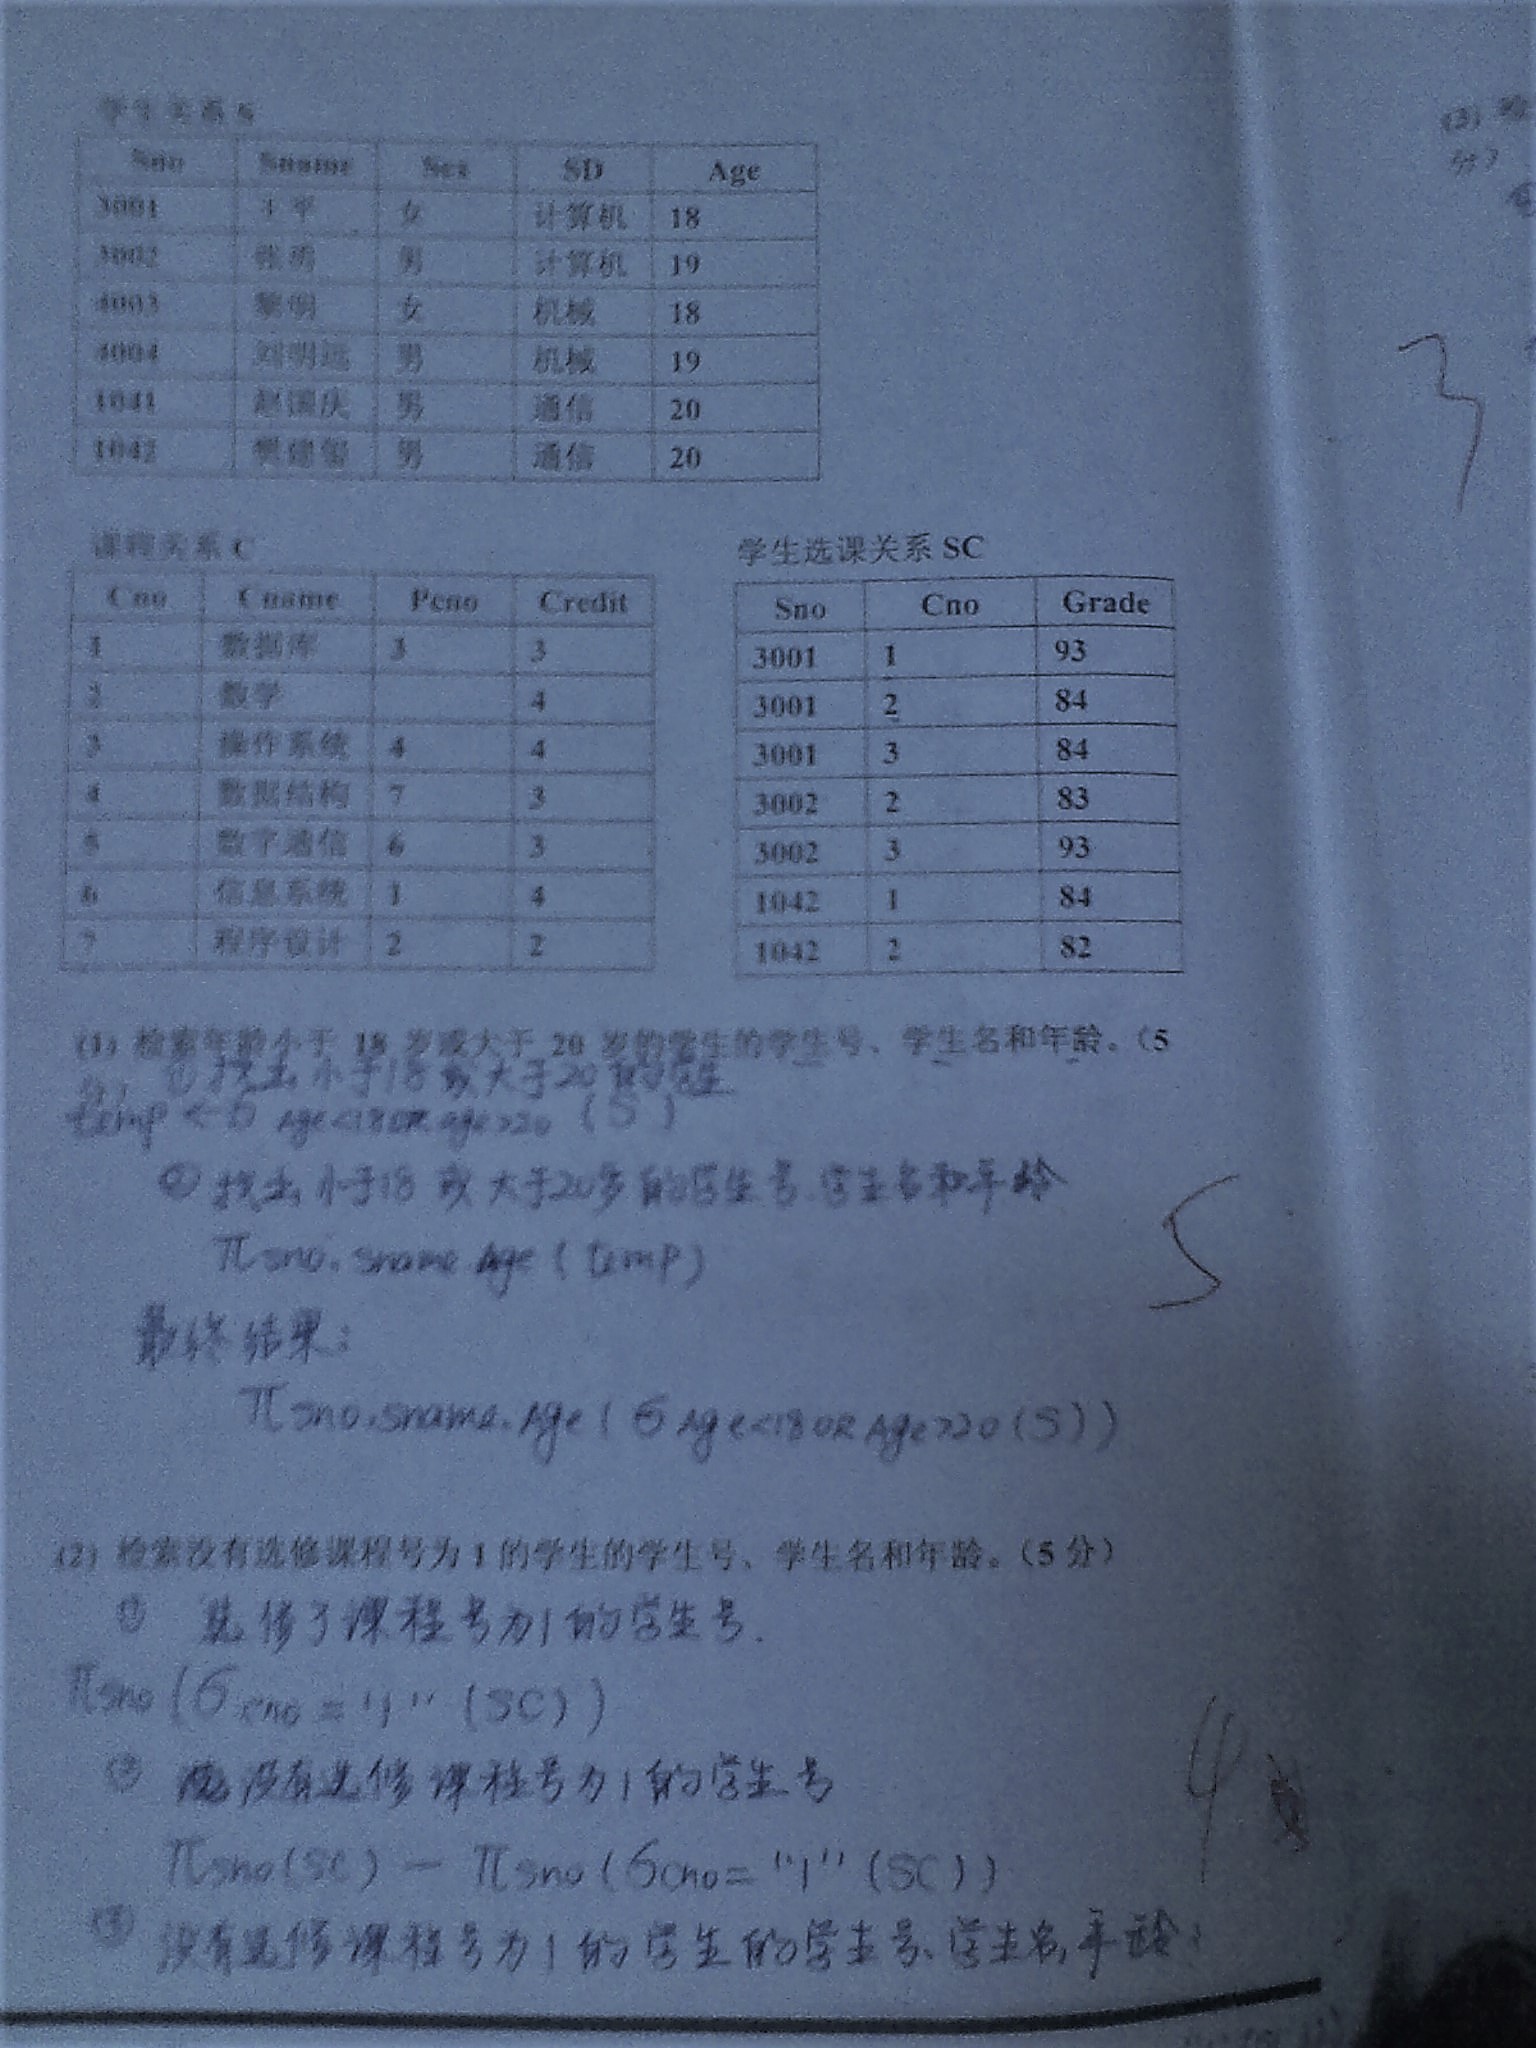 学生关系 S
Sno Sname Sex SD Age
3001 王平 女 计算机 18
3002 张勇 男 计算机 19
4003 黎明 女 机械 18
4004 刘明远 男 机械 19
1041 赵国庆 男 通信 20
1042 樊建玺 男 通信 20
课程关系 C
Cno Cname Pcno Credit
1 数据库 3 3
2 数学 4
3 操作系统 4 4
4 数据结构 7 3
5 数字通信 6 3
6 信息系统 1 4
7 程序设计 2 2
学生选课关系 SC
Sno Cno Grade
3001 1 93
3001 2 84
3001 3 84
3002 2 83
3002 3 93
1042 1 84
1042 2 82
(1) 检索年龄小于 18 岁或大于 20 岁的学生的学生号、学生名和年龄。(5
分) ① 找出小于18或大于20的学生
temp ← σ Age<18 OR age>20 (S)
② 找出小于18或大于20岁的学生号.学生名和年龄
π sno. sname. Age (temp)
最终结果:
π sno.sname.Age (σ Age<18 OR Age>20 (S))
5
(2) 检索没有选修课程号为 1 的学生的学生号、学生名和年龄。(5 分)
① 选修了课程号为1的学生号.
πsno (σ cno = "1" (SC))
② 没有选修课程号为1的学生号
πsno(SC) — πsno (σcno = "1" (SC))
4
③ 没有选修课程号为1的学生的学生号、学生名,年龄:
(3)
分)
3